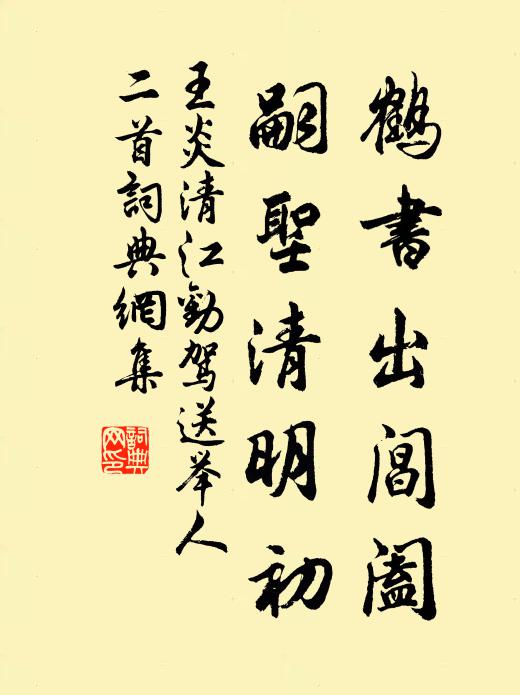 鶴書出閶闔
嗣聖清明初
王炎清江勸駕送举人
二首詞典網集
詞典網印